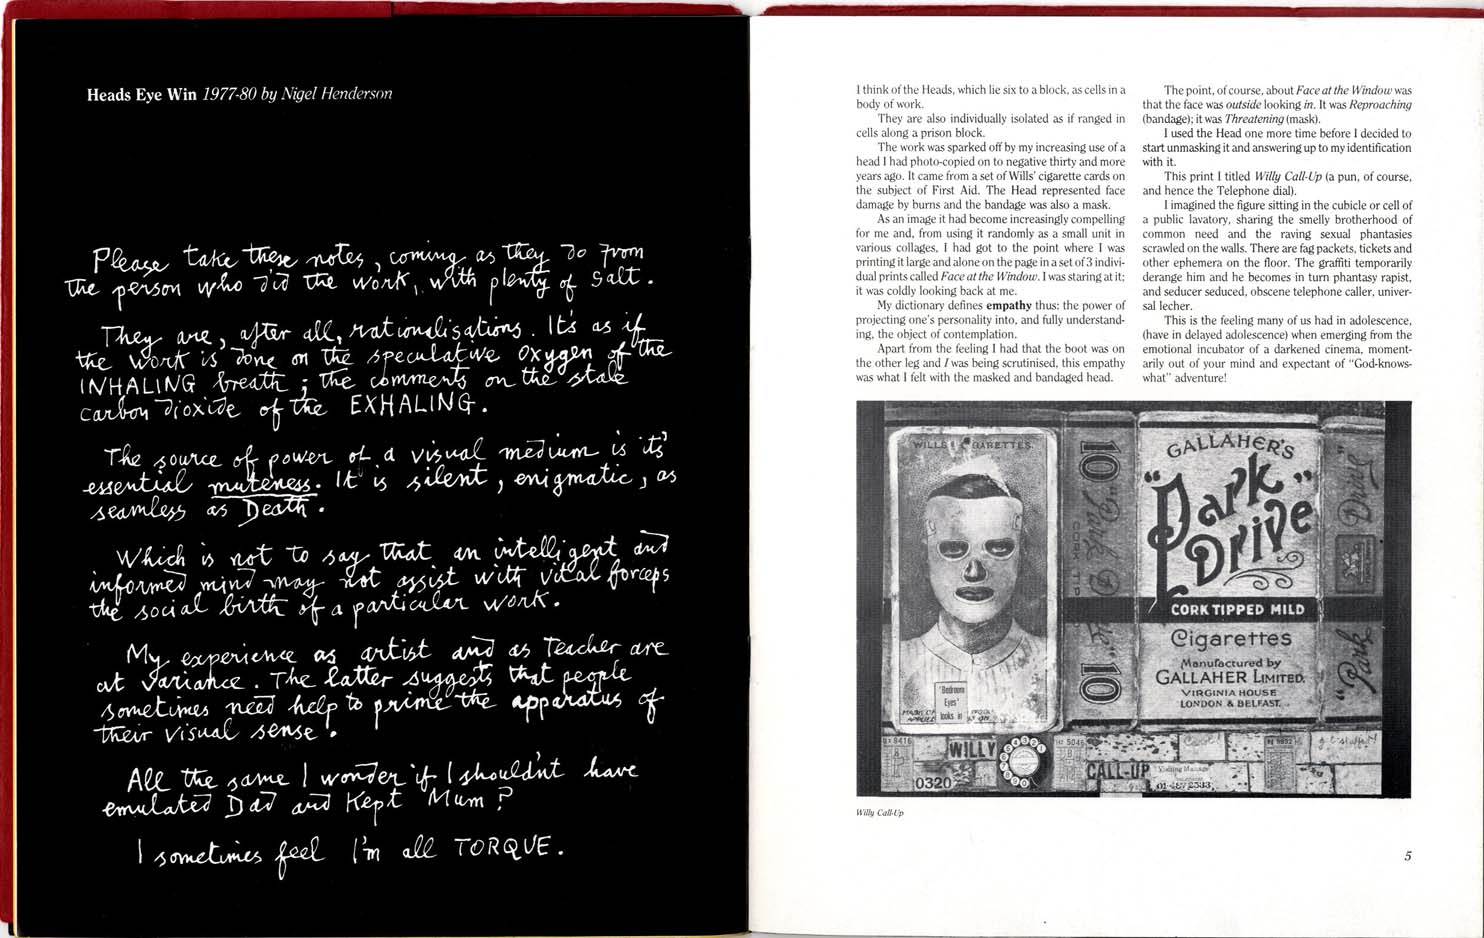 Heads Eye Win 1977-80 by Nigel Henderson
Please take these notes, coming as they do from
the person who did the work, with plenty of Salt.
They are, after all, rationalisations. It's as if
the work is done on the speculative oxygen of the
INHALING breath; the comments on the stale
carbon dioxide of the EXHALING.
The source of power of a visual medium is it's
essential muteness. It is silent, enigmatic, as
seamless as Death.
Which is not to say that an intelligent and
informed mind may not assist with vital forceps
the social birth of a particular work.
My experience as artist and as Teacher are
at variance. The latter suggests that people
sometimes need help to prime the apparatus of
their visual sense.
All the same I wonder if I shouldn't have
emulated Dad and Kept Mum?
I sometimes feel I'm all TORQUE.
I think of the Heads, which lie six to a block, as cells in a
body of work.
They are also individually isolated as if ranged in
cells along a prison block.
The work was sparked off by my increasing use of a
head I had photo-copied on to negative thirty and more
years ago. It came from a set of Wills' cigarette cards on
the subject of First Aid. The Head represented face
damage by burns and the bandage was also a mask.
As an image it had become increasingly compelling
for me and, from using it randomly as a small unit in
various collages, I had got to the point where I was
printing it large and alone on the page in a set of 3 indivi-
dual prints called Face at the Window. I was staring at it;
it was coldly looking back at me.
My dictionary defines empathy thus: the power of
projecting one's personality into, and fully understand-
ing, the object of contemplation.
Apart from the feeling I had that the boot was on
the other leg and I was being scrutinised, this empathy
was what I felt with the masked and bandaged head.
The point, of course, about Face at the Window was
that the face was outside looking in. It was Reproaching
(bandage); it was Threatening (mask).
I used the Head one more time before I decided to
start unmasking it and answering up to my identification
with it.
This print I titled Willy Call-Up (a pun, of course,
and hence the Telephone dial).
I imagined the figure sitting in the cubicle or cell of
a public lavatory, sharing the smelly brotherhood of
common need and the raving sexual phantasies
scrawled on the walls. There are fag packets, tickets and
other ephemera on the floor. The graffiti temporarily
derange him and he becomes in turn phantasy rapist,
and seducer seduced, obscene telephone caller, univer-
sal lecher.
This is the feeling many of us had in adolescence,
(have in delayed adolescence) when emerging from the
emotional incubator of a darkened cinema, moment-
arily out of your mind and expectant of "God-knows-
what" adventure!
WILLS'S CIGARETTES.
'Bedroom
Eyes'
looks in
10
"Park Drive"
CORK TIP
10
GALLAHER'S
"Park
Drive"
CORK TIPPED MILD
Cigarettes
Manufactured by
GALLAHER LIMITED.
VIRGINIA HOUSE
LONDON & BELFAST.
"Park
Drive"
WILLY
0320
CALL-UP
Willy Call-Up
5